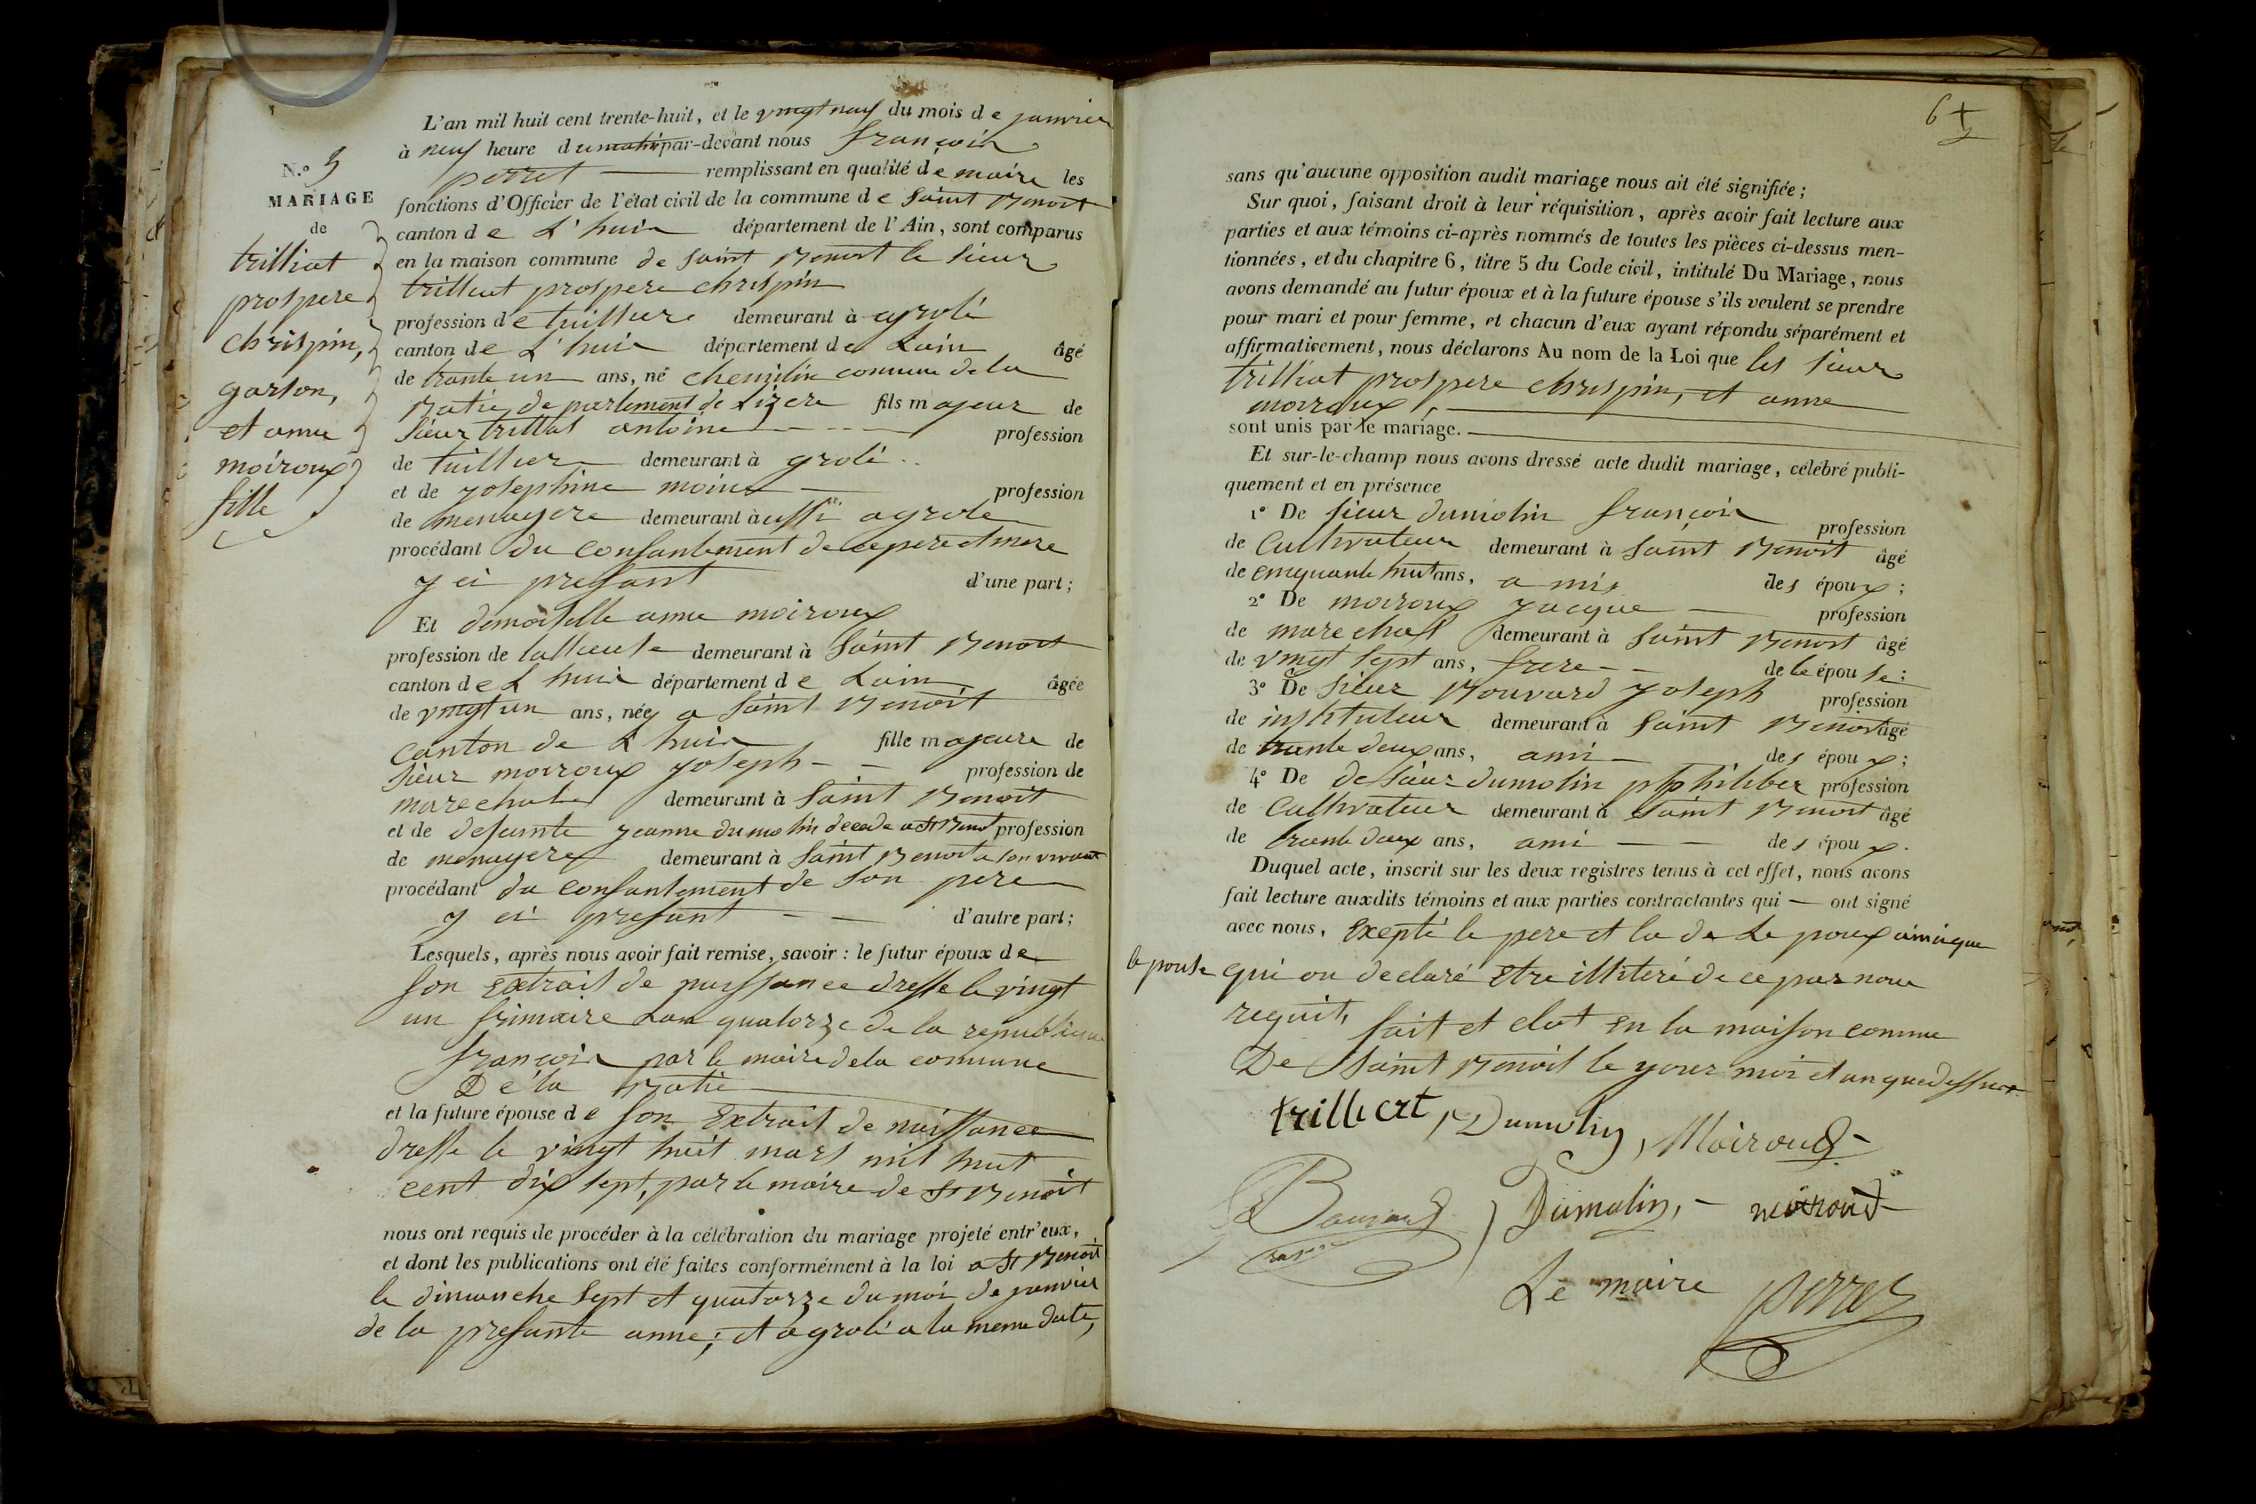 L'an mil huit cent trente-huit, et le vingt neuf du mois de janvier
à neuf heure du matin par-devant nous françois
perret remplissant en qualité de maire les
fonctions d'Officier de l'état civil de la commune de saint Benoit
canton de L'huis département de l'Ain, sont comparus
en la maison commune de saint Benoit le sieur
trilliat prospere chrispin
profession de tuilliere demeurant à agrolé
canton de L'huis département de Lain âgé
de trante un ans, né chemilin commune de la
Batie de partement de Lizere fils majeur de
sieur trilliat antoine profession
de tuilliere demeurant à grolé
et de josephine moine profession
de menagere demeurant à aussi agrole
procédant du consantement de ce pere et mere
y ci presant d'une part;
Et demoiselle anne moiroux
profession de demeurant à saint Benoit
canton de L huis département de Lain âgée
de vingt un ans, née a saint Benoit
canton de L huis fille majeure de
sieur moiroux joseph profession de
marechal demeurant à saint Benoit
et de defunte jeanne dumolin decede a St Benoit profession
de menagere demeurant à saint Benoit a son vivant
procédant du consantement de son pere
y ci presant d'autre part;
Lesquels, après nous avoir fait remise, savoir : le futur époux de
son extrait de naissance dresse le vingt
un frimaire Lan quatorze de la republique
françois par le maire de la commune
De la Batie
et la future épouse de son Extrait de naissance
dresse le vingt huit mars mil huit
cent dix sept, par le maire de St Benoit
nous ont requis de procéder à la célébration du mariage projeté entr'eux,
et dont les publications ont été faites conformément à la loi a St Benoit
le dimanche sept et quatorze du moi de janvier
de la presante anne; et a grolé a la meme date,
N.o 3
MARIAGE
de
trilliat
prospere
chrispin,
garson,
et anne
moiroux
fille
6
sans qu'aucune opposition audit mariage nous ait été signifiée;
Sur quoi, faisant droit à leur réquisition, après avoir fait lecture aux
parties et aux témoins ci-après nommés de toutes les pièces ci-dessus men-
tionnées, et du chapitre 6, titre 5 du Code civil, intitulé Du Mariage, nous
avons demandé au futur époux et à la future épouse s'ils veulent se prendre
pour mari et pour femme, et chacun d'eux ayant répondu séparément et
affirmativement, nous déclarons Au nom de la Loi que les sieur
trilliat prospere chrispin, et anne
moiroux,
sont unis par le mariage.
Et sur-le-champ nous avons dressé acte dudit mariage, célébré publi-
quement et en présence
1° De sieur dumolin françois profession
de Cultivateur demeurant à saint Benoit âgé
de cinquante huit ans, amis des époux;
2° De moiroux jacque profession
de marechal demeurant à saint Benoit âgé
de vingt sept ans, frere de le épouse;
3° De sieur Bouvard joseph profession
de instituteur demeurant à saint Benoit âgé
de trante deux ans, ami des époux;
4° De de sieur dumolin philiber profession
de Cultivateur demeurant à saint Benoit âgé
de trante deux ans, ami des époux.
Duquel acte, inscrit sur les deux registres tenus à cet effet, nous avons
fait lecture auxdits témoins et aux parties contractantes qui — ont signé
avec nous, Exepté le pere et la de Le poux ainsi que
le pouse qui on declaré Etre illiteré de ce par nous
requit, fait et clot En la maison comme
De saint Benoit le jour moi et an que dessus
trilliat, Dumolin, Moiroux
Bouvard Dumolin, moiroud
Le maire perret